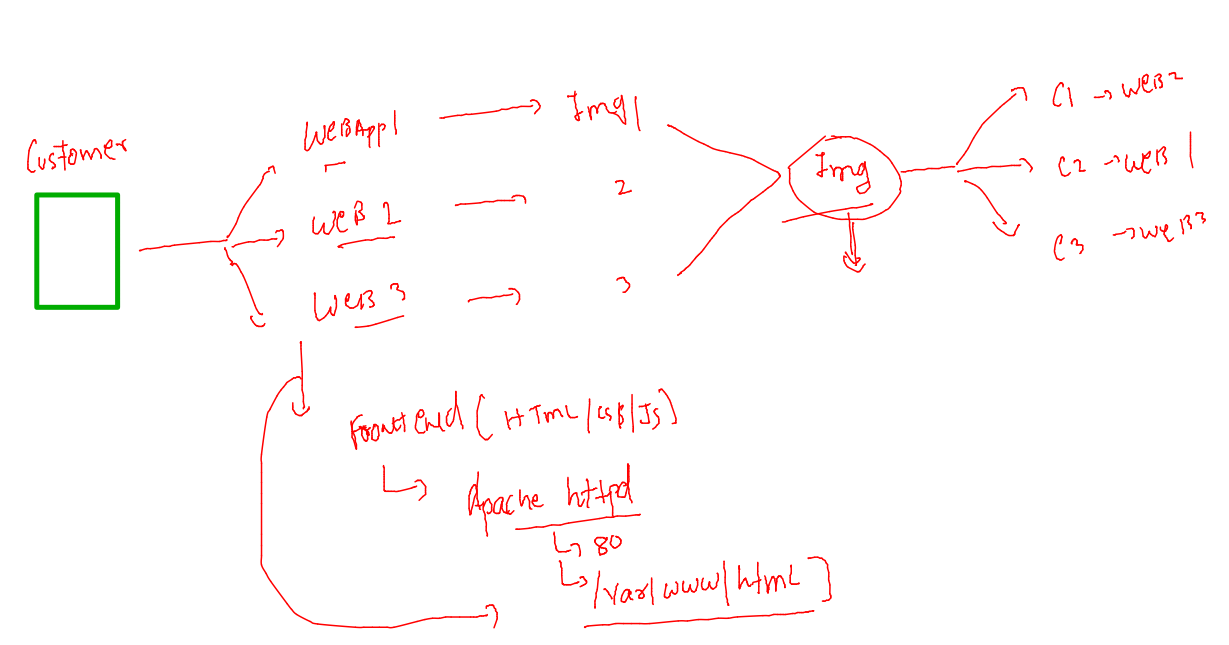 Customer
WEBApp1
Img1
WEB 2
2
WEB 3
3
Img
C1 → WEB2
C2 → WEB 1
C3 → WEB3
Frontend ( HTML/CSS/JS)
Apache httpd
80
/var/www/html ]